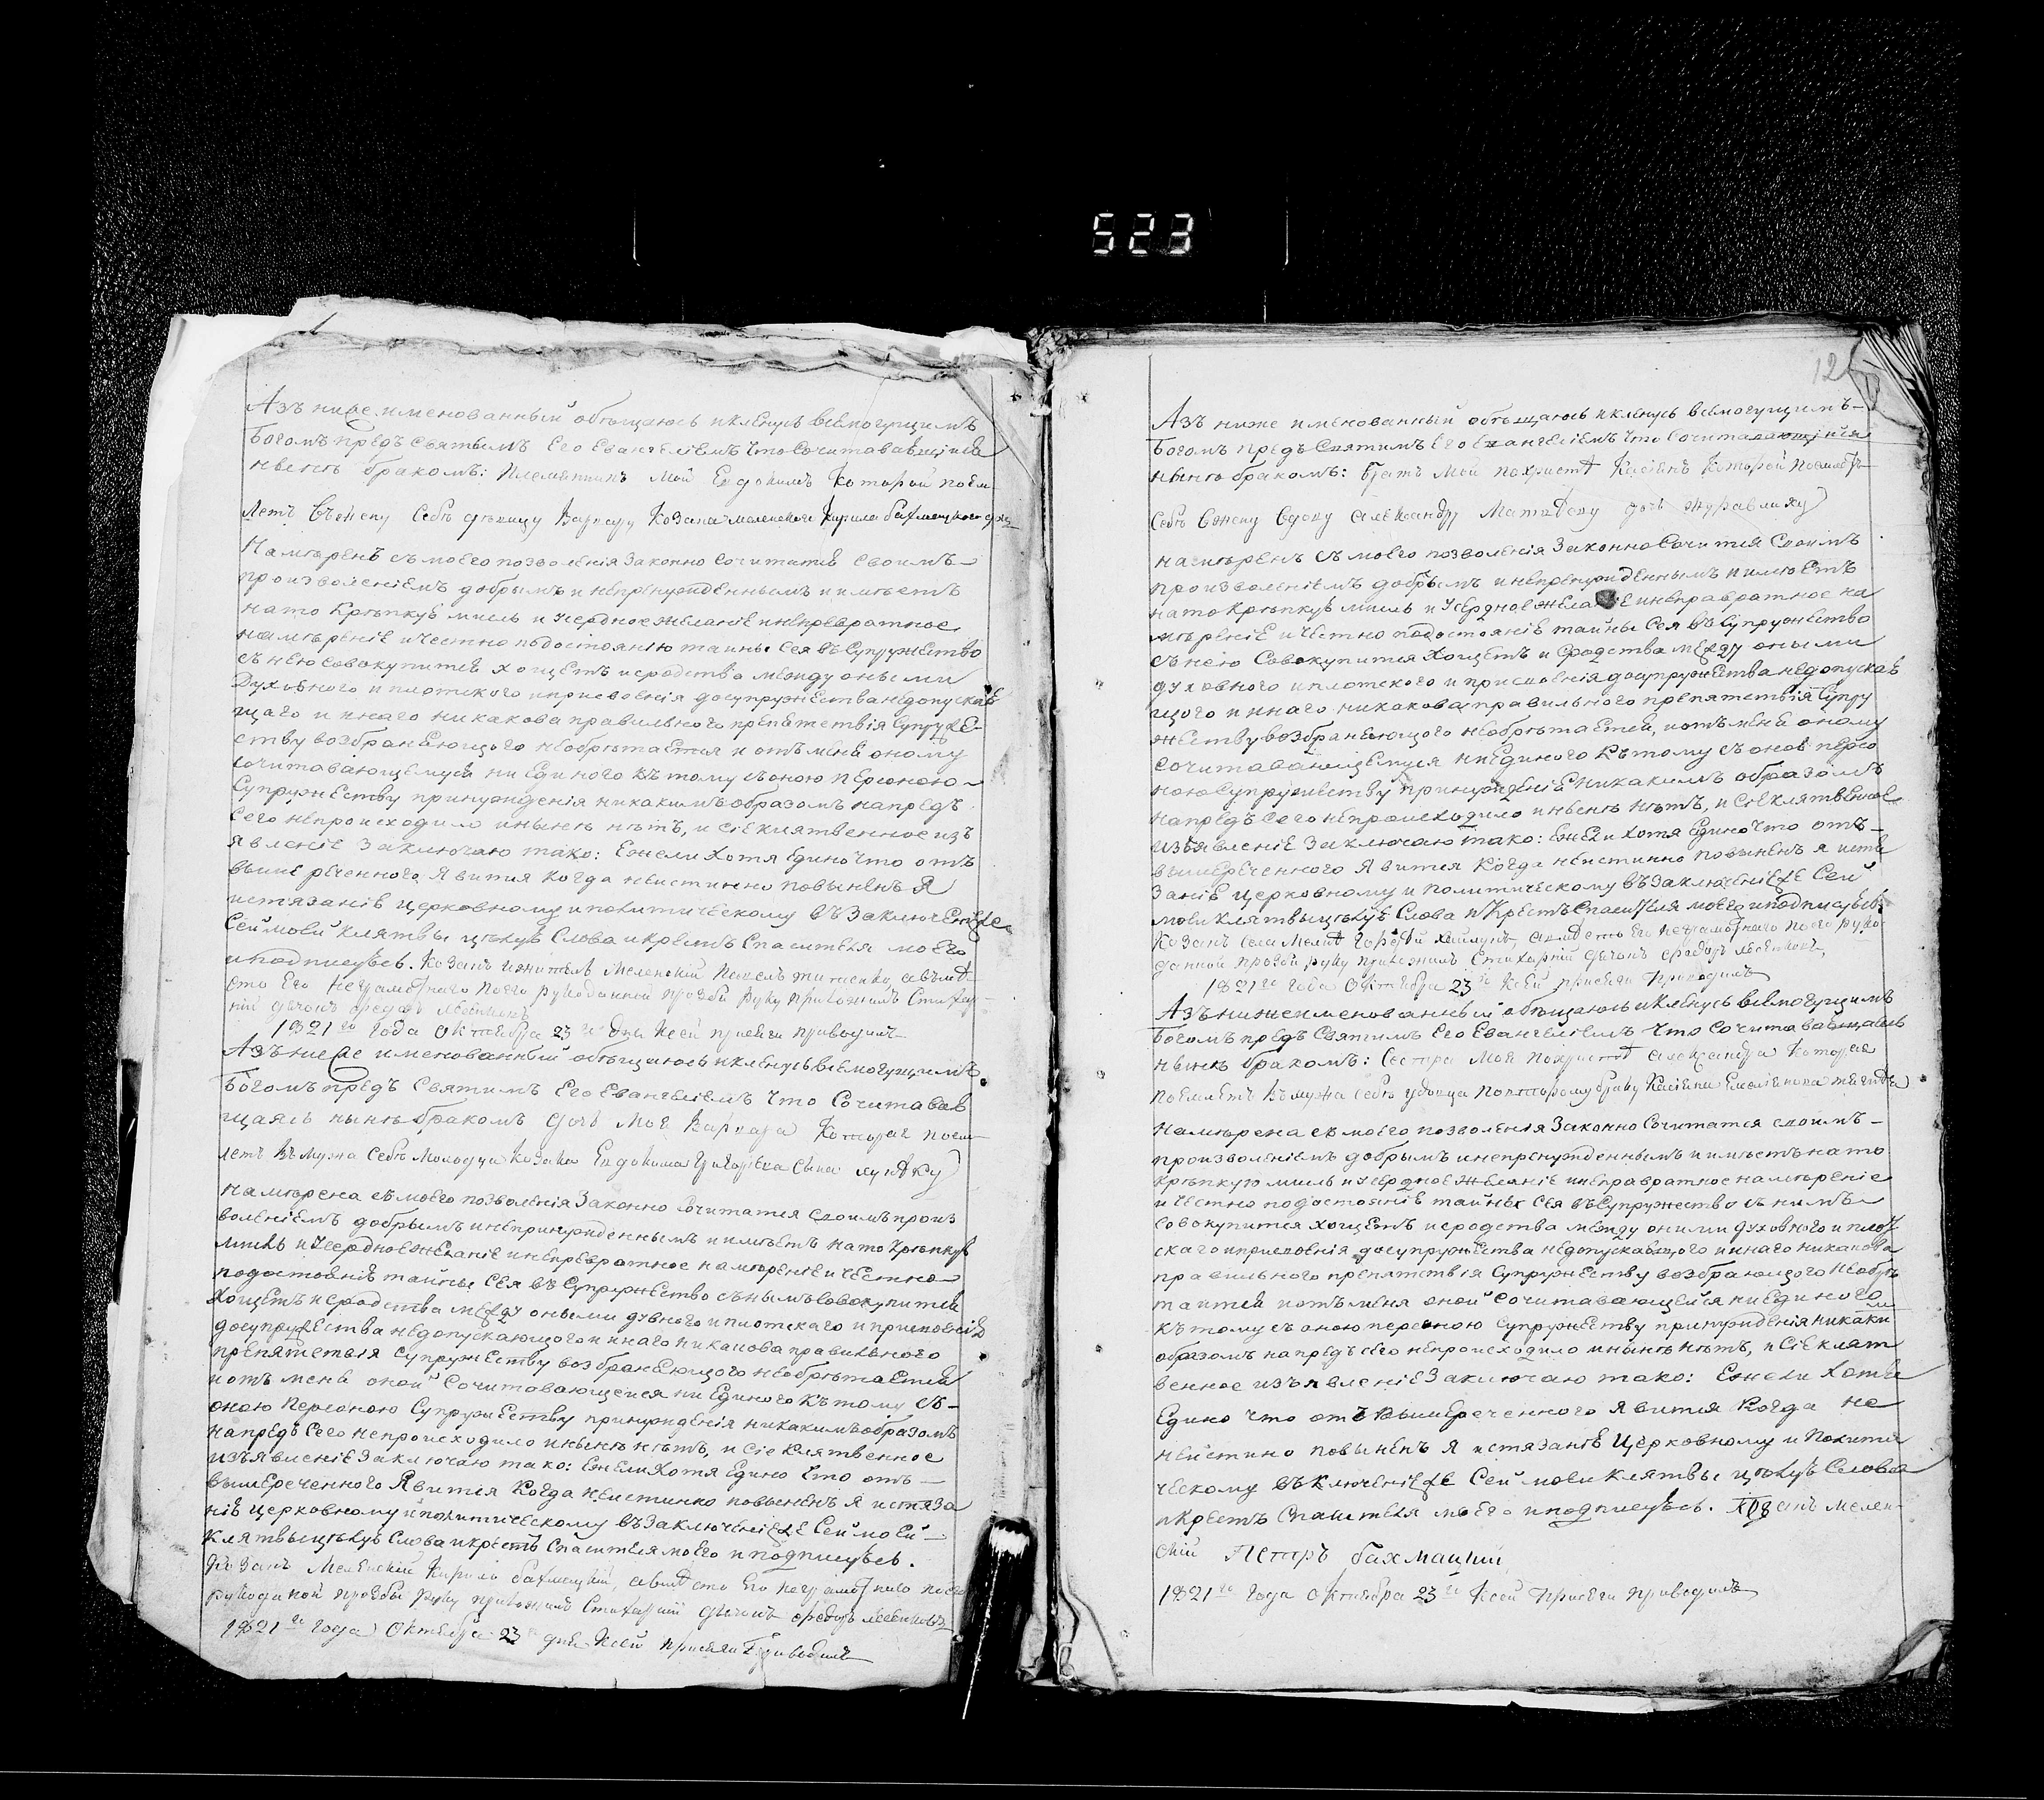 523
12
Азъ ниже имeнованный обѣщаюсь и кленусь всемогущимъ
Богомъ предъ Святымъ Его Евангелiемъ что Сочитавающiися
нынѣ бракомъ: племянникъ мой Евдокимъ Которой поем
летъ въ жену Себѣ дѣвицу Варвару Козака меленского Кирила бахмацкого дочь
Намѣренъ съ моего позволенiя Законно Сочитатися своимъ
произволенiемъ добрымъ и непренужденнымъ и имѣетъ
на то Крѣпкую мысль и усердное желанiе и непревратное
намѣренiе и Честно по достоянiю тайны Сея въ Супружество
съ нею совокупитися хощетъ и сродства между оными
Духовного и плотского и присвоенiя до супружества недопускаю
щаго и инаго никакова правильного препятствiя Супруже
ству возбраняющого необрѣтается и отъ меня оному
сочитавающемуся ни единого къ тому съ оною персоною
Супружеству принужденiя никакимъ образомъ напредъ
Сего непроисходило и нынѣ нѣтъ, и сiе клятвенное изъ
явленiе Заключаю тако: Ежели хотя едино что отъ
выше реченного Явится когда неистинно повыненъ Я
истязанiю церковному и политическому въ Заключенiе же
Сей моей клятвы цѣлую Слова и крестъ Спасителя моего
и подписуюсь. Козакъ
сто Его неграмотного по его рукоданной прозби руку приложилъ Стихар
ний дьячокъ федоръ
1821го года Октября 23го дня к сей присяги приводилъ
Азъ ниже именованный обѣщаюсь и кленусь всемогущимъ
Богомъ предъ Святимъ Его Евангелiемъ что Сочитаваю
щаясь нынѣ бракомъ дочь Моя Варвара Которая поем
летъ въ мужа Себѣ молодца козака Евдокима Григорiева Сына
Намѣрена съ моего позволенiя Законно Сочитатся своимъ произ
воленiемъ добрымъ и непринужденнымъ и имѣетъ на то Крѣпкую
мысль и усердное желанiе и непревратное намѣренiе и честно
по достоянiю тайны Сея въ Супружество съ нымъ совокупитися
хощетъ и сродства между оными дувного и плотскаго и присвоенiя
до супружества недопускающого и инаго никакова правильного
препятствiя супружеству возбраняющого необрѣтается
и отъ меня оной Сочитовающейся ни единого къ тому съ
оною персоною Супружеству принужденiя никакимъ образомъ
напредъ Сего непроисходило и нынѣ нѣтъ, и сiе клятвенное
изъявленiе Заключаю тако: Ежели хотя едино что отъ
вышереченного Явится Когда неистинно повыненъ Я истяза
нiю церковному и политическому въ Заключенiе же Сей моей
клятвы цѣлую Слова и крестъ Спасителя моего и подписуюсь.
Козакъ Меленскiй Кирило бахмацкiй, а вмѣсто Его неграмотного по его
рукоданой прозби руку приложилъ Стихарнiй дьячокъ федоръ
1821го года Октября 23 дня к сей присяги приводилъ
Азъ ниже именованный обѣщаюсь и кленусь всемогущимъ
Богомъ предъ Святимъ Его Евангелiемъ что Сочитавающiйся
нынѣ бракомъ: братъ мой по христѣ Касiянъ Которой поемлетъ
Себѣ въ жену вдову Александру Матвѣеву дочь Журавлиху
намѣренъ съ моего позволенiя Законно Сочитатся своимъ
произволенiемъ добрымъ и непренужденнымъ и имеетъ
на то Крѣпкую мысль и усердное желанiе и неправратное на
мѣренiе и честно по достоянiю тайны Сея въ Супружество
съ нею Совокупитися Хощетъ и сродства между оными
духовного и плотского и присвоенiя до супружества недопускаю
щого и инаго никакова правильного препятствiя Супру
жеству возбраняющого необрѣтается, и отъ меня оному
сочитавающемуся ни единого къ тому съ оною персо
ною Супружеству принужденiе никакимъ образомъ
напредъ сего непроисходило и нынѣ нѣтъ, и сiе клятвенное
изъявленiе Заключаю тако: Ежели хотя едино что отъ
вышереченного Явится когда неистинно повыненъ я истя
занiю церковному и политическому въ Заключенiе же Сей
моей клятвы цѣлую Слова и Крестъ Спасителя моего и подписуюсь
Козакъ села Мелнѣ
данной прозби руку приложилъ Стихарнiй дьячокъ федоръ
1821го года Октября 23го к сей присяги приводилъ
Азъ ниже именованный обѣщаюсь и кленусь всемогущимъ
Богомъ предъ Святимъ Его Евангелiемъ что сочитавающаясь
нынѣ бракомъ: Сестра моя по христѣ Александра Которая
поемлетъ въ мужа Себѣ удовца по второму браку Касiяна
Намѣрена съ моего позволенiя Законно Сочитатся своимъ
произволенiемъ добрымъ и непренужденнымъ и имѣетъ на то
крѣпкую мысль и усердное желанiе и неправратное намѣренiе
и честно по достоянiю тайны Сея въ Супружество съ нимъ
совокупится хощетъ и сродства между оними духовного и плот
скаго и присвоенiя до супружества недопускающого и инаго никакова
правильного препятствiя Супружеству возбрающого необрѣ
таится и отъ меня оной сочитавающейся ни единого
къ тому съ оною персоною супружеству принужденiя никаким
образомъ напредъ сего непроисходило и нынѣ нѣтъ, и сiе клят
венное изъявленiе Заключаю тако: Ежели хотя
Едино что отъ вышереченного Явится Когда не
неистино повыненъ Я истязанiю Церковному и полити
ческому въ ключенiе же Сей моей клятвы цѣлую Слова
и крестъ Спасителя моего и подписуюсь. Козакъ мелен
скiй Петръ бахмацкий
1821го года октября 23го к сей присяги приводилъ